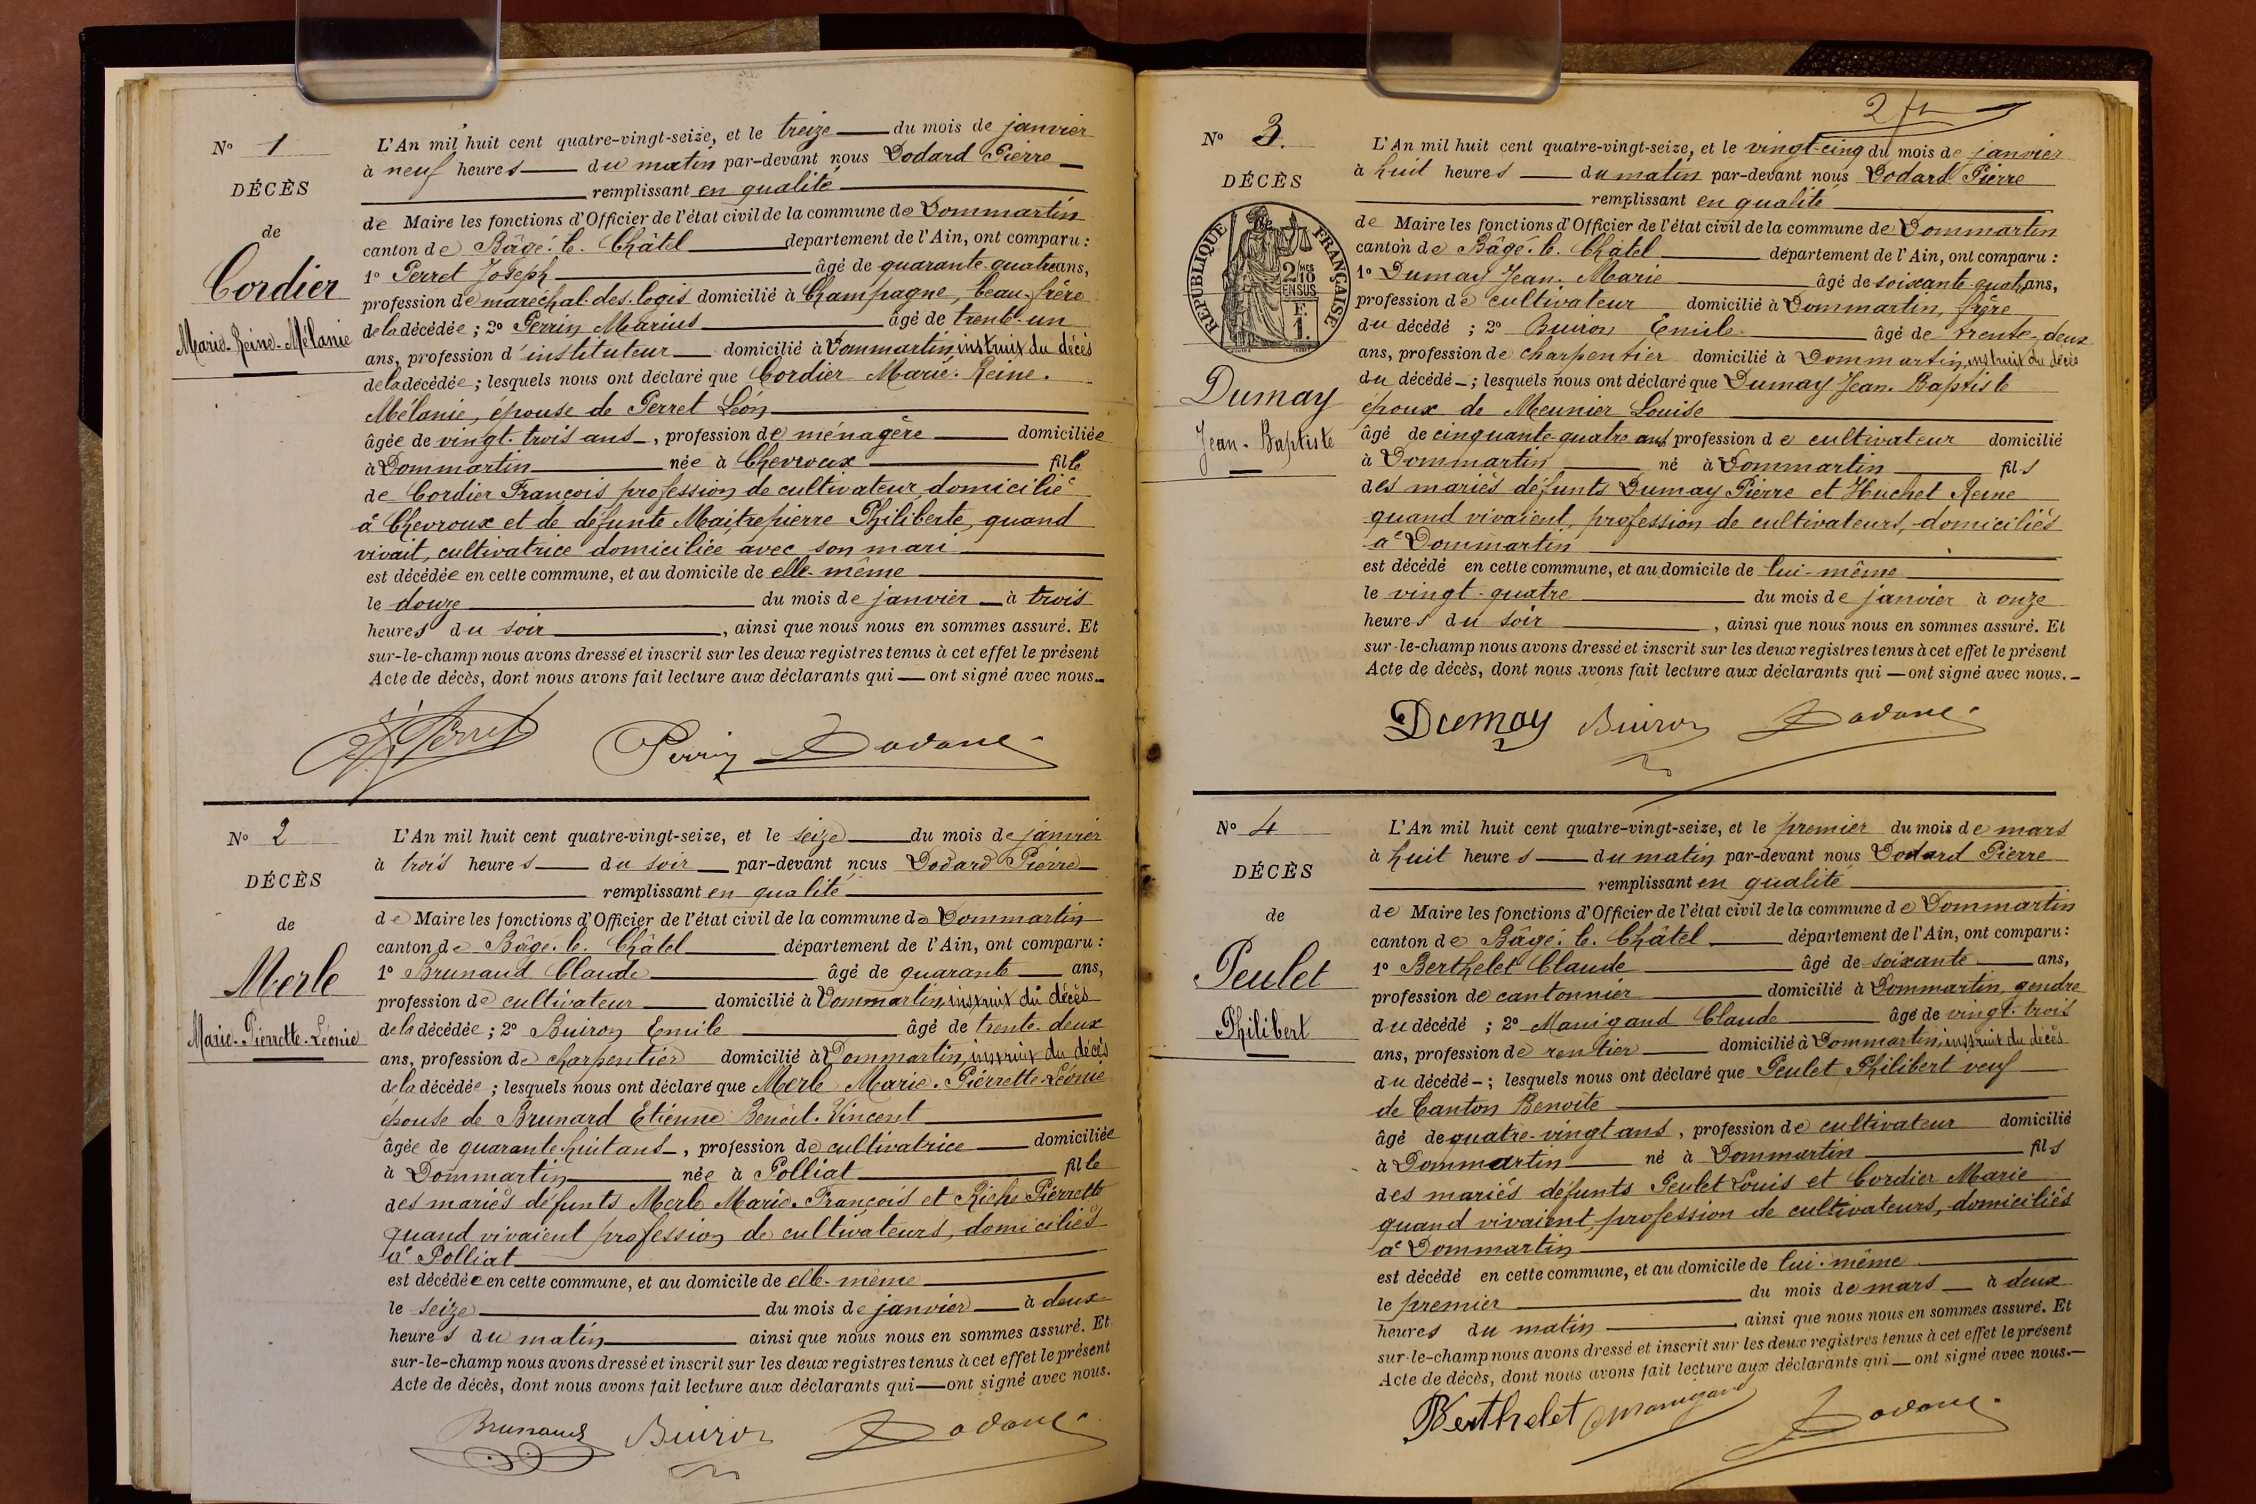 N° 1
DÉCÈS
de
Cordier
Marie-Reine-Mélanie
L'An mil huit cent quatre-vingt-seize, et le treize du mois de janvier
à neuf heures du matin par-devant nous Dodard Pierre
remplissant en qualité
de Maire les fonctions d'Officier de l'état civil de la commune de Dommartin
canton de Bâgé-le-Châtel département de l'Ain, ont comparu :
1° Perret Joseph âgé de quarante-quatre ans,
profession de maréchal-des-logis domicilié à Champagne, beau-frère
de la décédée ; 2° Perrin Marius âgé de trente-un
ans, profession d'instituteur domicilié à Dommartin, instruit du décès
de la décédée ; lesquels nous ont déclaré que Cordier Marie-Reine-
Mélanie, épouse de Perret Léon
âgée de vingt-trois ans, profession de ménagère domiciliée
à Dommartin née à Chevroux fille
de Cordier François profession de cultivateur domicilié
à Chevroux et de défunte Maitrepierre Philiberte, quand
vivait, cultivatrice domiciliée avec son mari
est décédée en cette commune, et au domicile de elle-même
le douze du mois de janvier à trois
heures du soir, ainsi que nous nous en sommes assuré. Et
sur-le-champ nous avons dressé et inscrit sur les deux registres tenus à cet effet le présent
Acte de décès, dont nous avons fait lecture aux déclarants qui ont signé avec nous.
J. Perret Perrin Dodard
N° 2
DÉCÈS
de
Merle
Marie-Pierrette-Léonie
L'An mil huit cent quatre-vingt-seize, et le seize du mois de janvier
à trois heures du soir par-devant nous Dodard Pierre
remplissant en qualité
de Maire les fonctions d'Officier de l'état civil de la commune de Dommartin
canton de Bâgé-le-Châtel département de l'Ain, ont comparu :
1° Brunaud Claude âgé de quarante ans,
profession de cultivateur domicilié à Dommartin, instruit du décès
de la décédée ; 2° Buiron Emile âgé de trente-deux
ans, profession de charpentier domicilié à Dommartin, instruit du décès
de la décédée ; lesquels nous ont déclaré que Merle Marie-Pierrette-Léonie
épouse de Brunard Etienne Benoit-Vincent
âgée de quarante-huit ans, profession de cultivatrice domiciliée
à Dommartin née à Polliat fille
des mariés défunts Merle Marie-François et Pierrette
quand vivaient profession de cultivateurs, domiciliés
à Polliat
est décédée en cette commune, et au domicile de elle-même
le seize du mois de janvier à deux
heures du matin ainsi que nous nous en sommes assuré. Et
sur-le-champ nous avons dressé et inscrit sur les deux registres tenus à cet effet le présent
Acte de décès, dont nous avons fait lecture aux déclarants qui ont signé avec nous.
Brunaud Buiron Dodard
2
N° 3.
DÉCÈS
de
RÉPUBLIQUE FRANÇAISE
2/10 EN SUS
F.
1.
Dumay
Jean-Baptiste
L'An mil huit cent quatre-vingt-seize, et le vingt-cinq du mois de janvier
à huit heures du matin par-devant nous Dodard Pierre
remplissant en qualité
de Maire les fonctions d'Officier de l'état civil de la commune de Dommartin
canton de Bâgé-le-Châtel département de l'Ain, ont comparu :
1° Dumay Jean-Marie âgé de soixante-quatre ans,
profession de cultivateur domicilié à Dommartin, frère
du décédé ; 2° Buiron Emile âgé de trente-deux
ans, profession de charpentier domicilié à Dommartin, instruit du décès
du décédé ; lesquels nous ont déclaré que Dumay Jean-Baptiste
époux de Meunier Louise
âgé de cinquante-quatre ans profession de cultivateur domicilié
à Dommartin né à Dommartin fils
des mariés défunts Dumay Pierre et Huchet Reine
quand vivaient, profession de cultivateurs, domiciliés
à Dommartin
est décédé en cette commune, et au domicile de lui-même
le vingt-quatre du mois de janvier à onze
heures du soir, ainsi que nous nous en sommes assuré. Et
sur-le-champ nous avons dressé et inscrit sur les deux registres tenus à cet effet le présent
Acte de décès, dont nous avons fait lecture aux déclarants qui ont signé avec nous.
Dumay Buiron Dodard
N° 4
DÉCÈS
de
Peulet
Philibert
L'An mil huit cent quatre-vingt-seize, et le premier du mois de mars
à huit heures du matin par-devant nous Dodard Pierre
remplissant en qualité
de Maire les fonctions d'Officier de l'état civil de la commune de Dommartin
canton de Bâgé-le-Châtel département de l'Ain, ont comparu :
1° Berthelet Claude âgé de soixante ans,
profession de cantonnier domicilié à Dommartin, gendre
du décédé ; 2° Manigand Claude âgé de vingt-trois
ans, profession de rentier domicilié à Dommartin, instruit du décès
du décédé ; lesquels nous ont déclaré que Peulet Philibert veuf
de Canton Benoîte
âgé de quatre-vingt ans, profession de cultivateur domicilié
à Dommartin né à Dommartin fils
des mariés défunts Peulet Louis et Cordier Marie
quand vivaient, profession de cultivateurs, domiciliés
à Dommartin
est décédé en cette commune, et au domicile de lui-même
le premier du mois de mars à deux
heures du matin, ainsi que nous nous en sommes assuré. Et
sur-le-champ nous avons dressé et inscrit sur les deux registres tenus à cet effet le présent
Acte de décès, dont nous avons fait lecture aux déclarants qui ont signé avec nous.
Berthelet Manigand Dodard